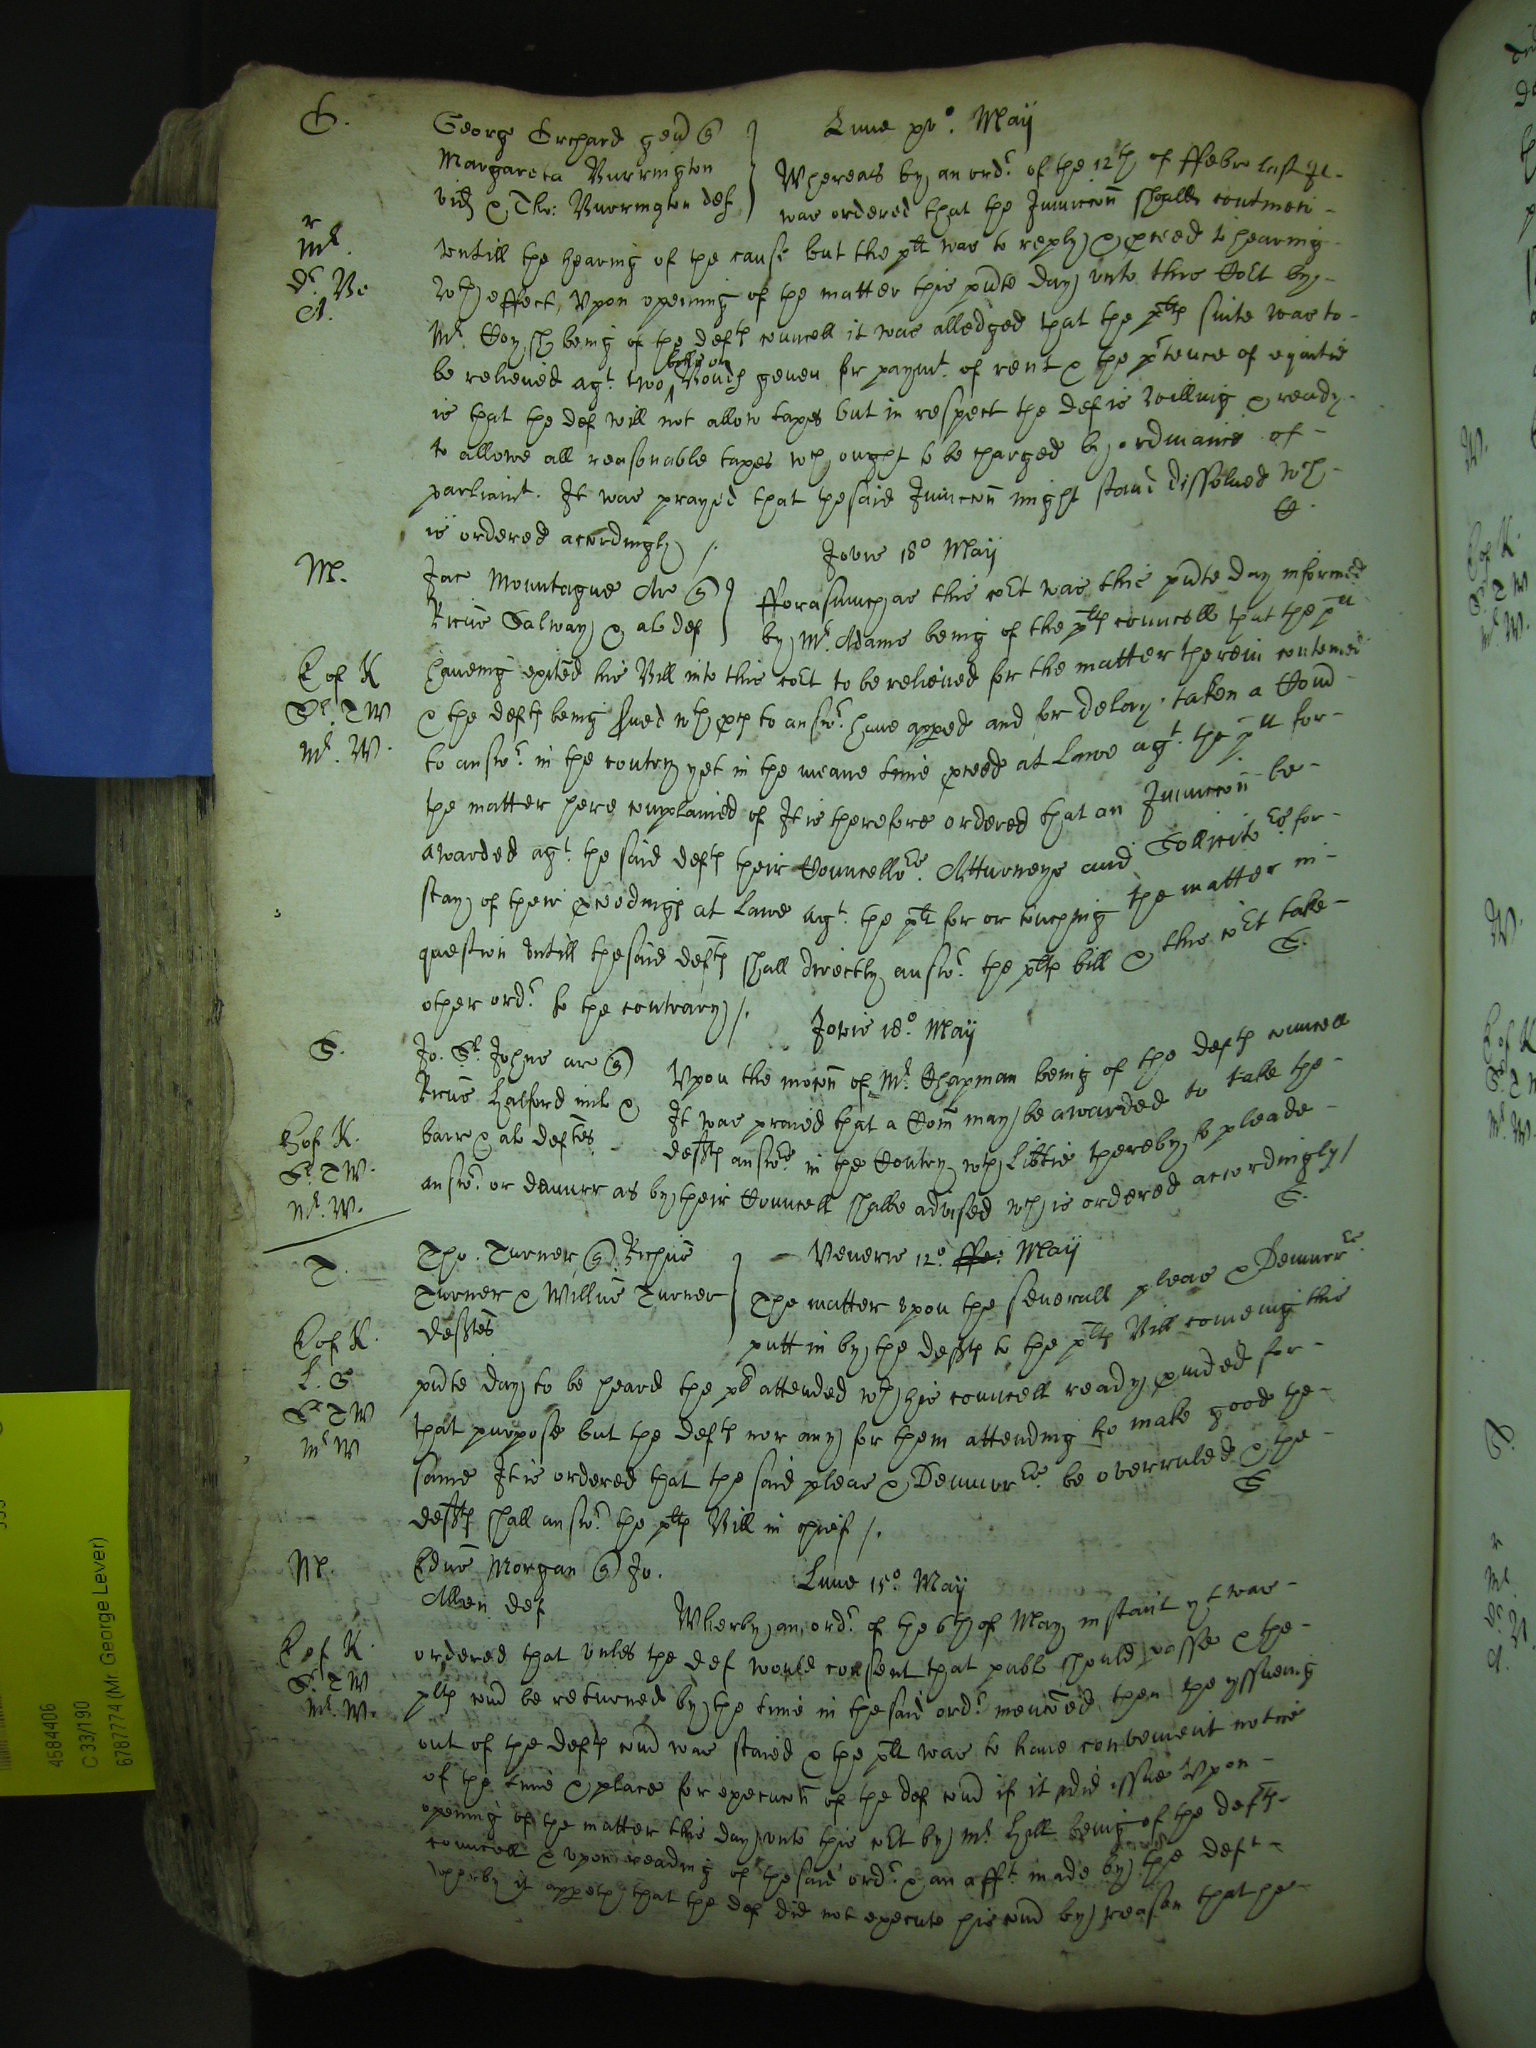 O.
George Orchard gen̄ q
Margareta Burrington
vid & Tho: Burrington def
Lune pro. Maij
Whereas by an ordr. of the 12th of ffebr last it
was ordered that the Iniuncc̄on shall continue
r
Mr.
Dr. Be
A.
vntill the hearing of the cause but the plt was to reply & p̱ceed to hearing
wth effect, Vpon opening of the matter this p̄nte day vnto this Cort by
Mr. being of the defts councell it was alledged that the plts suite was to
be relieued agt. two bills or
bonds geuen for paymt. of rent & the p̄tence of equitie
is that the def will not allow taxes but in respect the def is willing & ready
to allowe all reasonable taxes wch ought to be charged by ordinance of
parliamt. It was prayed that the said Iniuncc̄on might stand dissolued wch
is ordered accordingly /.
Iovis 18o Maij
M.
Jac Mountague Ar q
Ric̄us Salway & al def
fforasmuch as this cort was this p̄nte day informed
by Mr. Adams being of the plts councell that the plt
E of K
Sr. T W
Mr. W.
haueing exĩted his Bill into this cort to be relieued for the matter therein conteined
& the defts being s̄ued wth p̱ces to answr. haue app̱ed and for delay taken a Com̄
to answr. in the contry yet in the meane time p̱ceed at Lawe agt. the plt for
the matter here complained of It is therefore ordered that an Iniuncc̄on be
awarded agt. the said defts their Councellors. Atturneys and Sollicitors for
stay of their p̱ceedings at Lawe agt. the plt for or touching the matter in
question vntill the said defts shall directly answr. the plts bill & this cort take
other ordr. to the contrary /.
Iovis 18o. Maij
S.
Jo. St. Johns ar q
Ric̄us Halford mil &
barr & al deftes
Vpon the moc̄on of Mr. Chapman being of the defts councell
It was praied that a Com̄ may be awarded to take the
defts answrs in the Contry wth Lib̄tie thereby to pleade
E of K.
Sr. T W.
Mr. W.
answr. or demurr as by their Councell shalbe advised wch is ordered accordingly /
T.
Tho. Turner q Rich̄us
Turner & Will̄us Turner
deftes
Veneris 12o. ffe: Maij
The matter vpon the seuerall pleas & Demurrs.
putt in by the defts to the plts Bill comeing this
E of K.
L. S
Sr T W
Mr W
p̄nte day to be heard the plt attended wth his councell ready p̱uided for
that purpose but the defts nor any for them attending to make good the
same It is ordered that the said pleas & Demurrs. be overruled & the
defts shall answr. the plts Bill in chief /.
M.
Edrus Morgan q Jo.
Allen def
Lune 15o. Maij
Wherby an ordr. of the 6th of May instant yt was
E of K.
Sr. T W
Mr. W.
ordered that vnles the def would consent that publ should passe & the
plts com̄ be returned by the time in the said ordr. menc̄oned then the yssueing
out of the defts com̄ was staied & the plt was to haue convenient notice
of the time & place for execuc̄on of the def com̄ if it did issue Vpon
opening of the matter this day vnto this cort by Mr. Hill being of the defts
councell & vpon reading of the said ordr. & an afft. made by the deft
wherby it app̱eth that the def did not execute his com̄ by reason that he
4584406
C 33/190
6787774 (Mr George Lever)